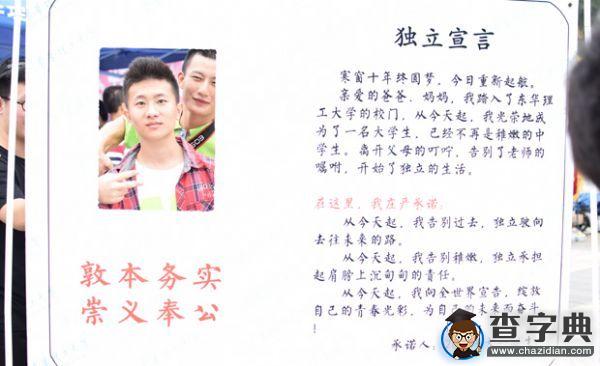 独立宣言
寒窗十年终圆梦，今日重新起航。
亲爱的爸爸、妈妈，我踏入了东华理
工大学的校门，从今天起，我光荣地成
为了一名大学生，已经不再是稚嫩的中
学生。离开父母的叮咛，告别了老师的
嘱咐，开始了独立的生活。
在这里，我庄严承诺：
从今天起，我告别过去，独立驶向
去往未来的路。
从今天起，我告别稚嫩，独立承担
起肩膀上沉甸甸的责任。
从今天起，我向全世界宣告，绽放
自己的青春光彩，为自己的未来而奋斗
！
承诺人：
敦本务实
崇义奉公
查字典
www.chazidian.com